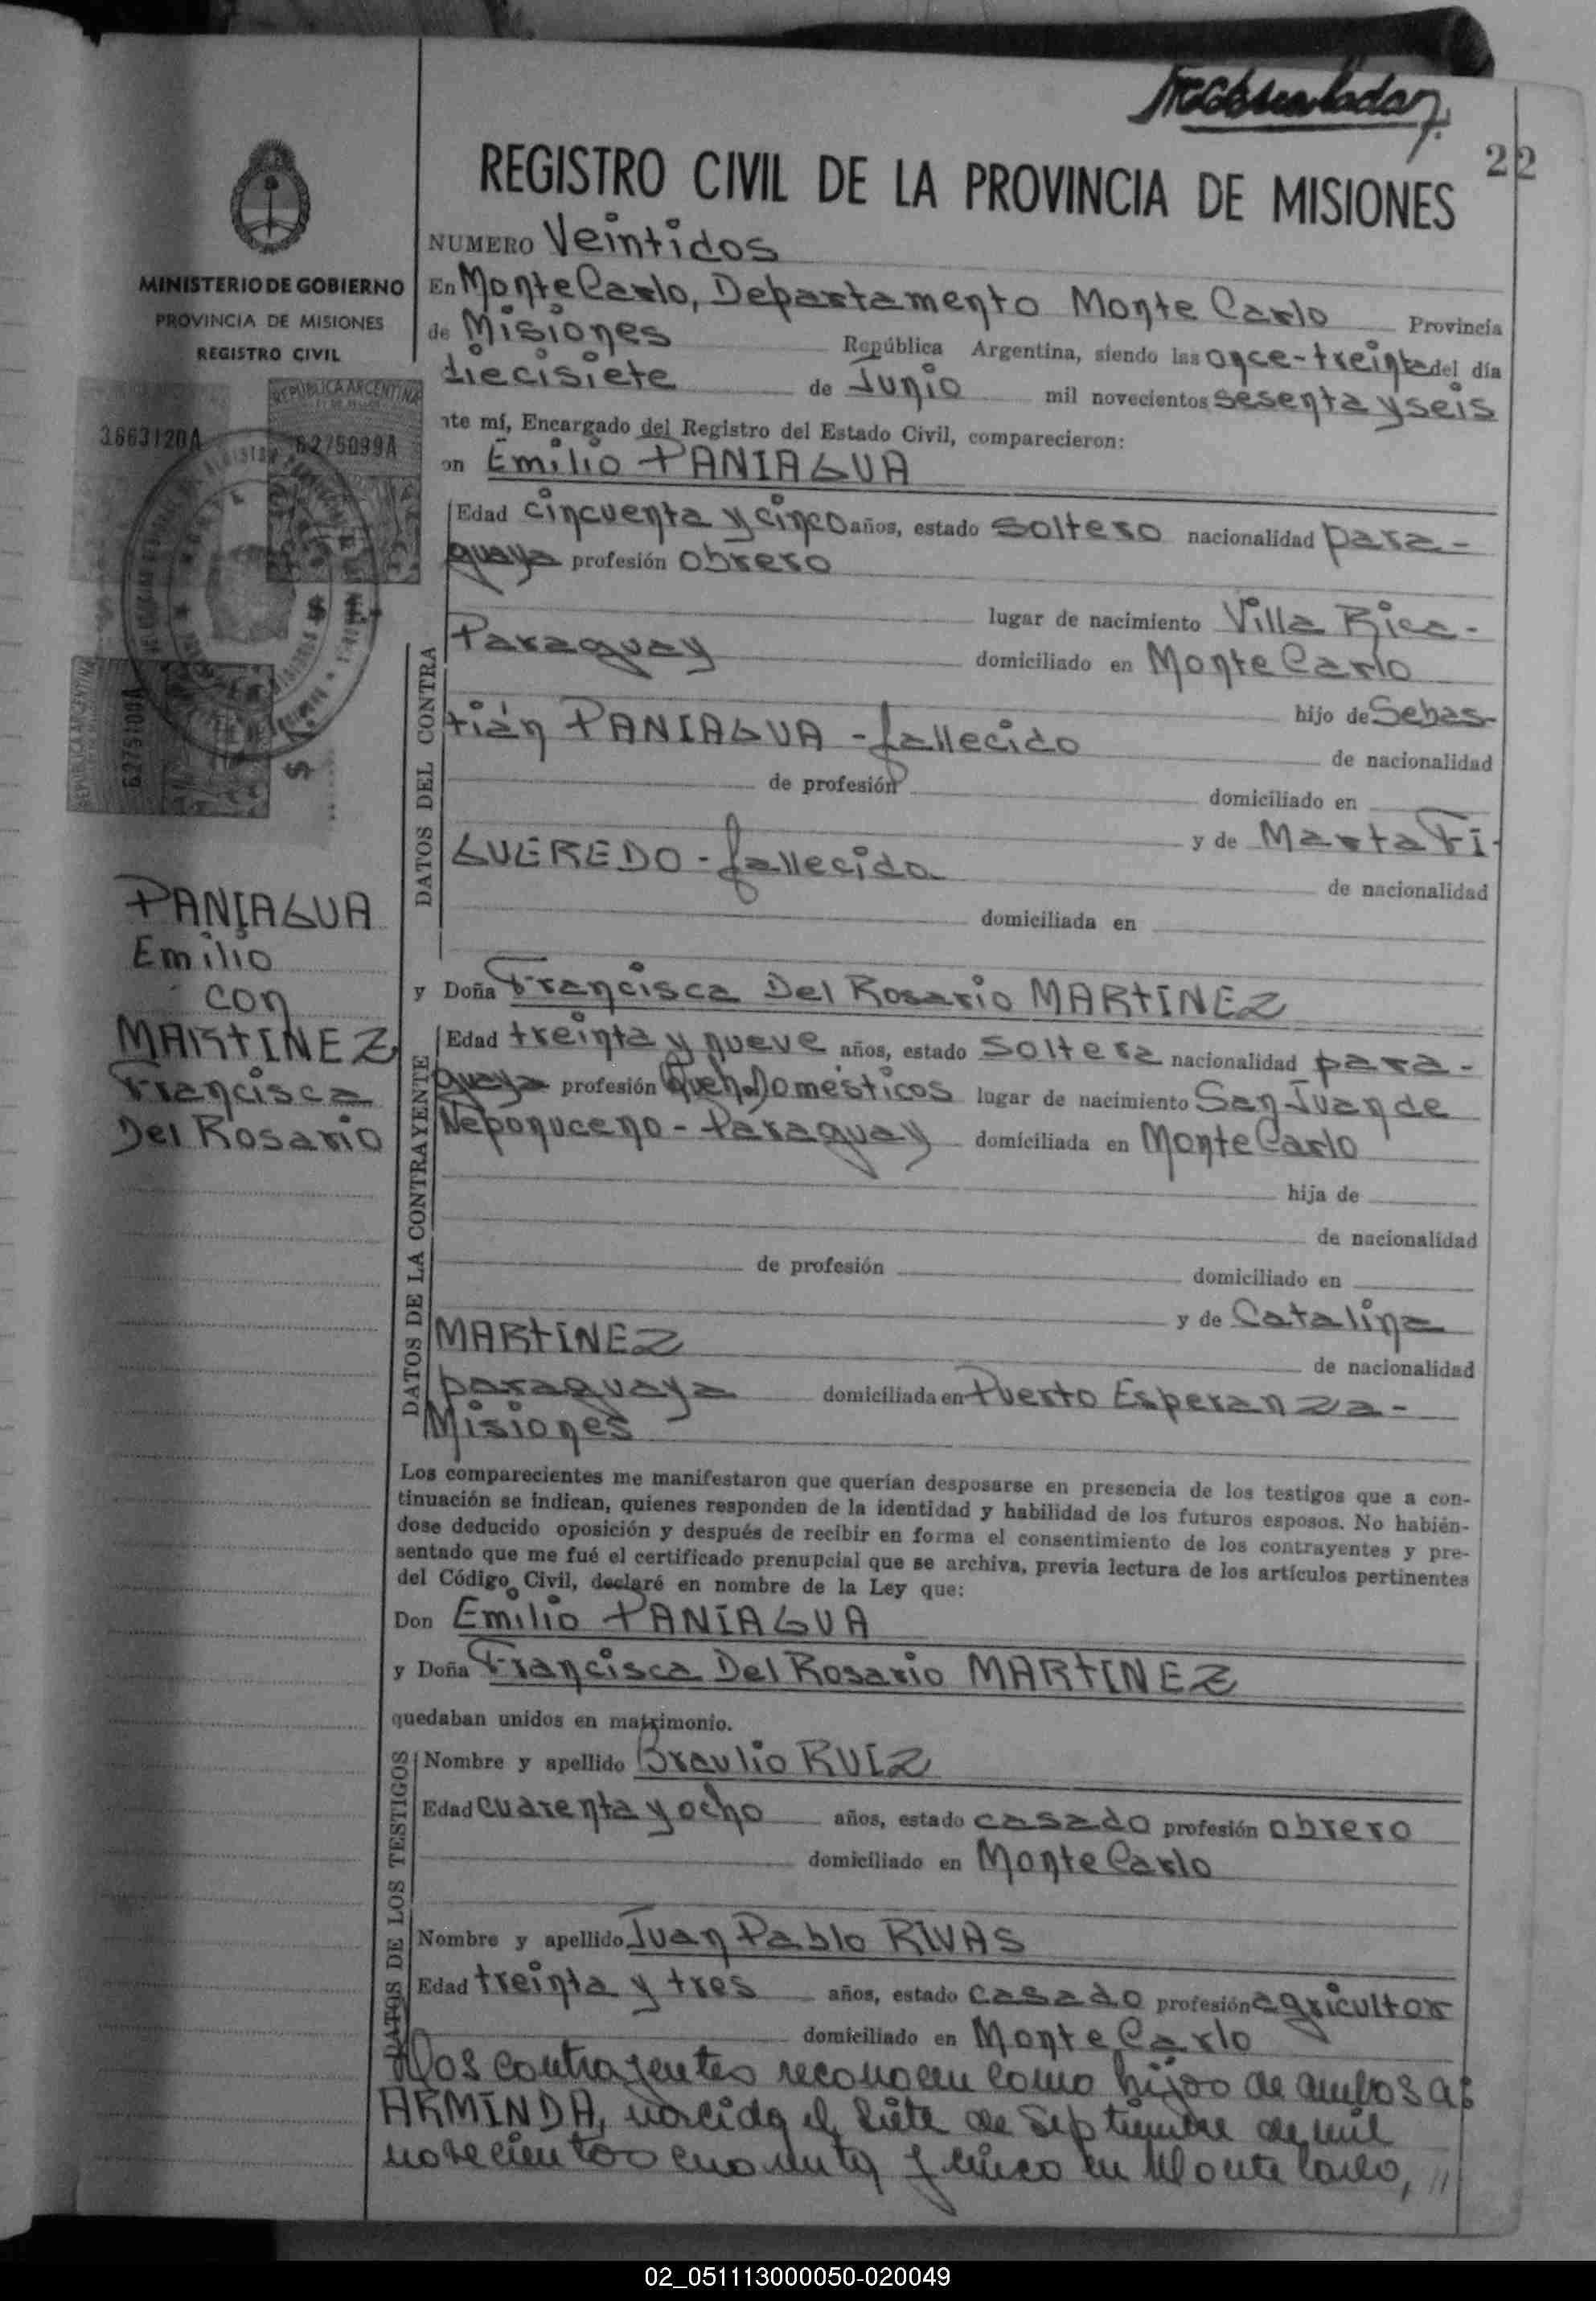 22
REGISTRO CIVIL DE LA PROVINCIA DE MISIONES
MINISTERIO DE GOBIERNO
PROVINCIA DE MISIONES
REGISTRO CIVIL
REPUBLICA ARGENTINA
3663120A
6275099A
REPUBLICA ARGENTINA
6275100A
PANIAGUA
Emilio
con
MARTINEZ
Francisca
Del Rosario
NUMERO Veintidos
En Monte Carlo, Departamento Monte Carlo Provincia
de Misiones República Argentina, siendo las once-treinta del día
diecisiete de Junio mil novecientos sesenta y seis
nte mí, Encargado del Registro del Estado Civil, comparecieron:
on Emilio PANIAGUA
Edad cincuenta y cinco años, estado soltero nacionalidad para-
guaya profesión obrero
lugar de nacimiento Villa Rica-
Paraguay domiciliado en Monte Carlo
hijo de Sebas-
tián PANIAGUA - fallecido de nacionalidad
de profesión domiciliado en
y de Marta Fi-
GUEREDO - fallecida de nacionalidad
domiciliada en
DATOS DEL CONTRA
y Doña Francisca Del Rosario MARTINEZ
Edad treinta y nueve años, estado soltera nacionalidad para-
guaya profesión Queh.Domésticos lugar de nacimiento San Juan de
Neponuceno - Paraguay domiciliada en Monte Carlo
hija de
de nacionalidad
de profesión domiciliado en
y de Catalina
MARTINEZ de nacionalidad
paraguaya domiciliada en Puerto Esperanza-
Misiones
DATOS DE LA CONTRAYENTE
Los comparecientes me manifestaron que querían desposarse en presencia de los testigos que a con-
tinuación se indican, quienes responden de la identidad y habilidad de los futuros esposos. No habién-
dose deducido oposición y después de recibir en forma el consentimiento de los contrayentes y pre-
sentado que me fué el certificado prenupcial que se archiva, previa lectura de los artículos pertinentes
del Código Civil, declaré en nombre de la Ley que:
Don Emilio PANIAGUA
y Doña Francisca Del Rosario MARTINEZ
quedaban unidos en matrimonio.
Nombre y apellido Braulio RUIZ
Edad cuarenta y ocho años, estado casado profesión obrero
domiciliado en Monte Carlo
Nombre y apellido Juan Pablo RIVAS
Edad treinta y tres años, estado casado profesión agricultor
domiciliado en Monte Carlo
DATOS DE LOS TESTIGOS
Los contrayentes reconocen como hijos de ambos a:
ARMINDA, nacida el siete de septiembre de mil
novecientos cuarenta y cinco en Monte Carlo, //
02_051113000050-020049